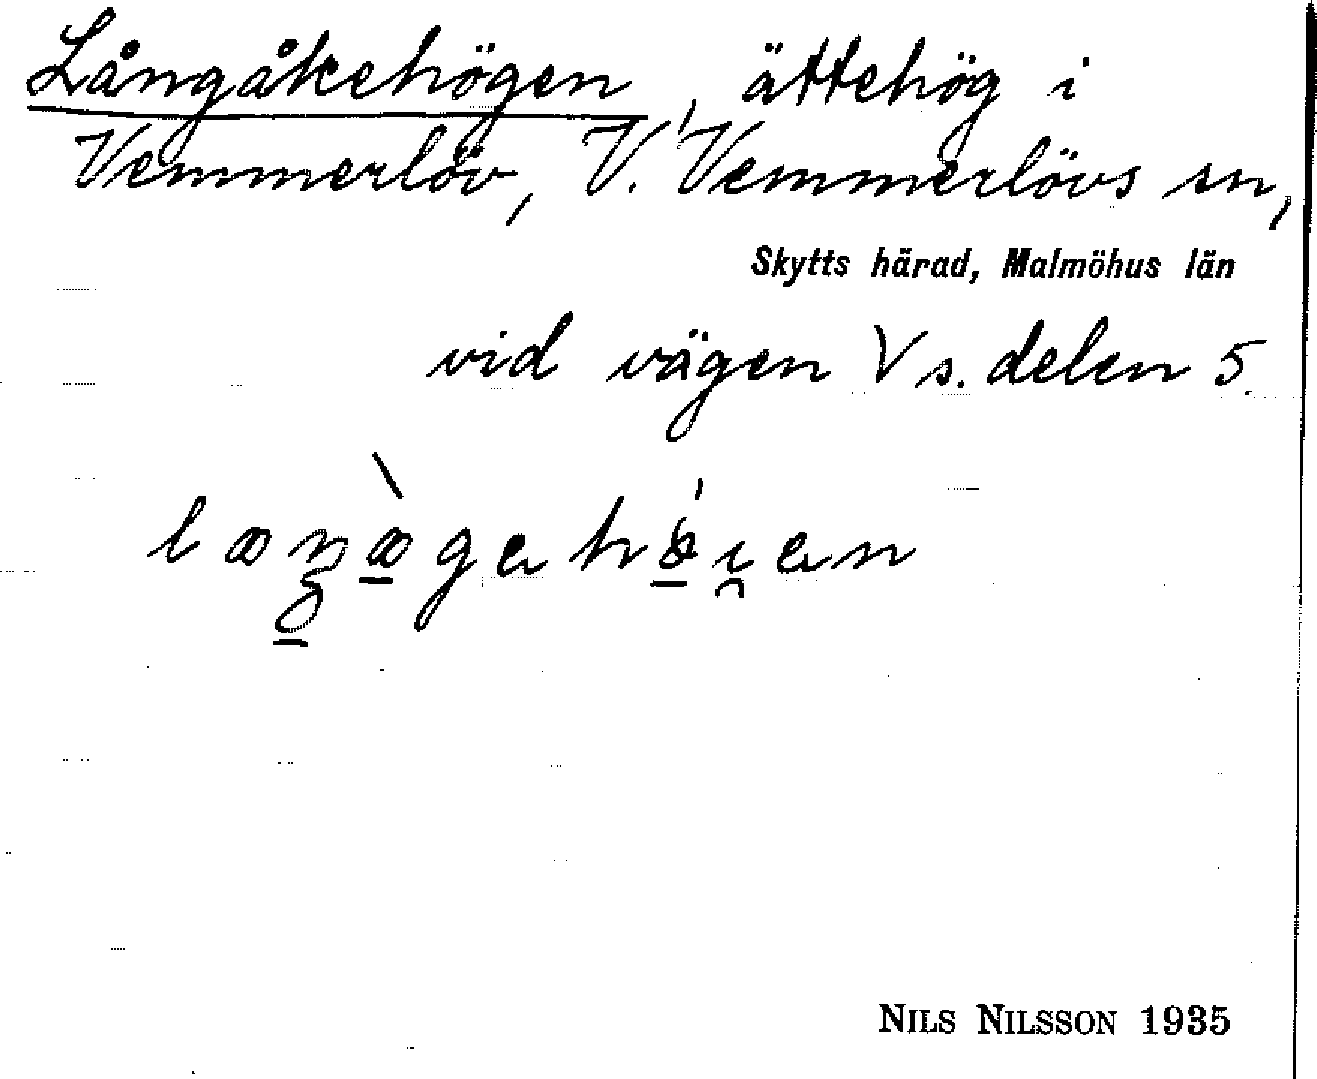 Långåkehögen, ättehög i
Vemmerlöv, V. Vemmerlövs sn,
Skytts härad, Malmöhus län
vid vägen V s. delen 5.
NILS NILSSON 1935